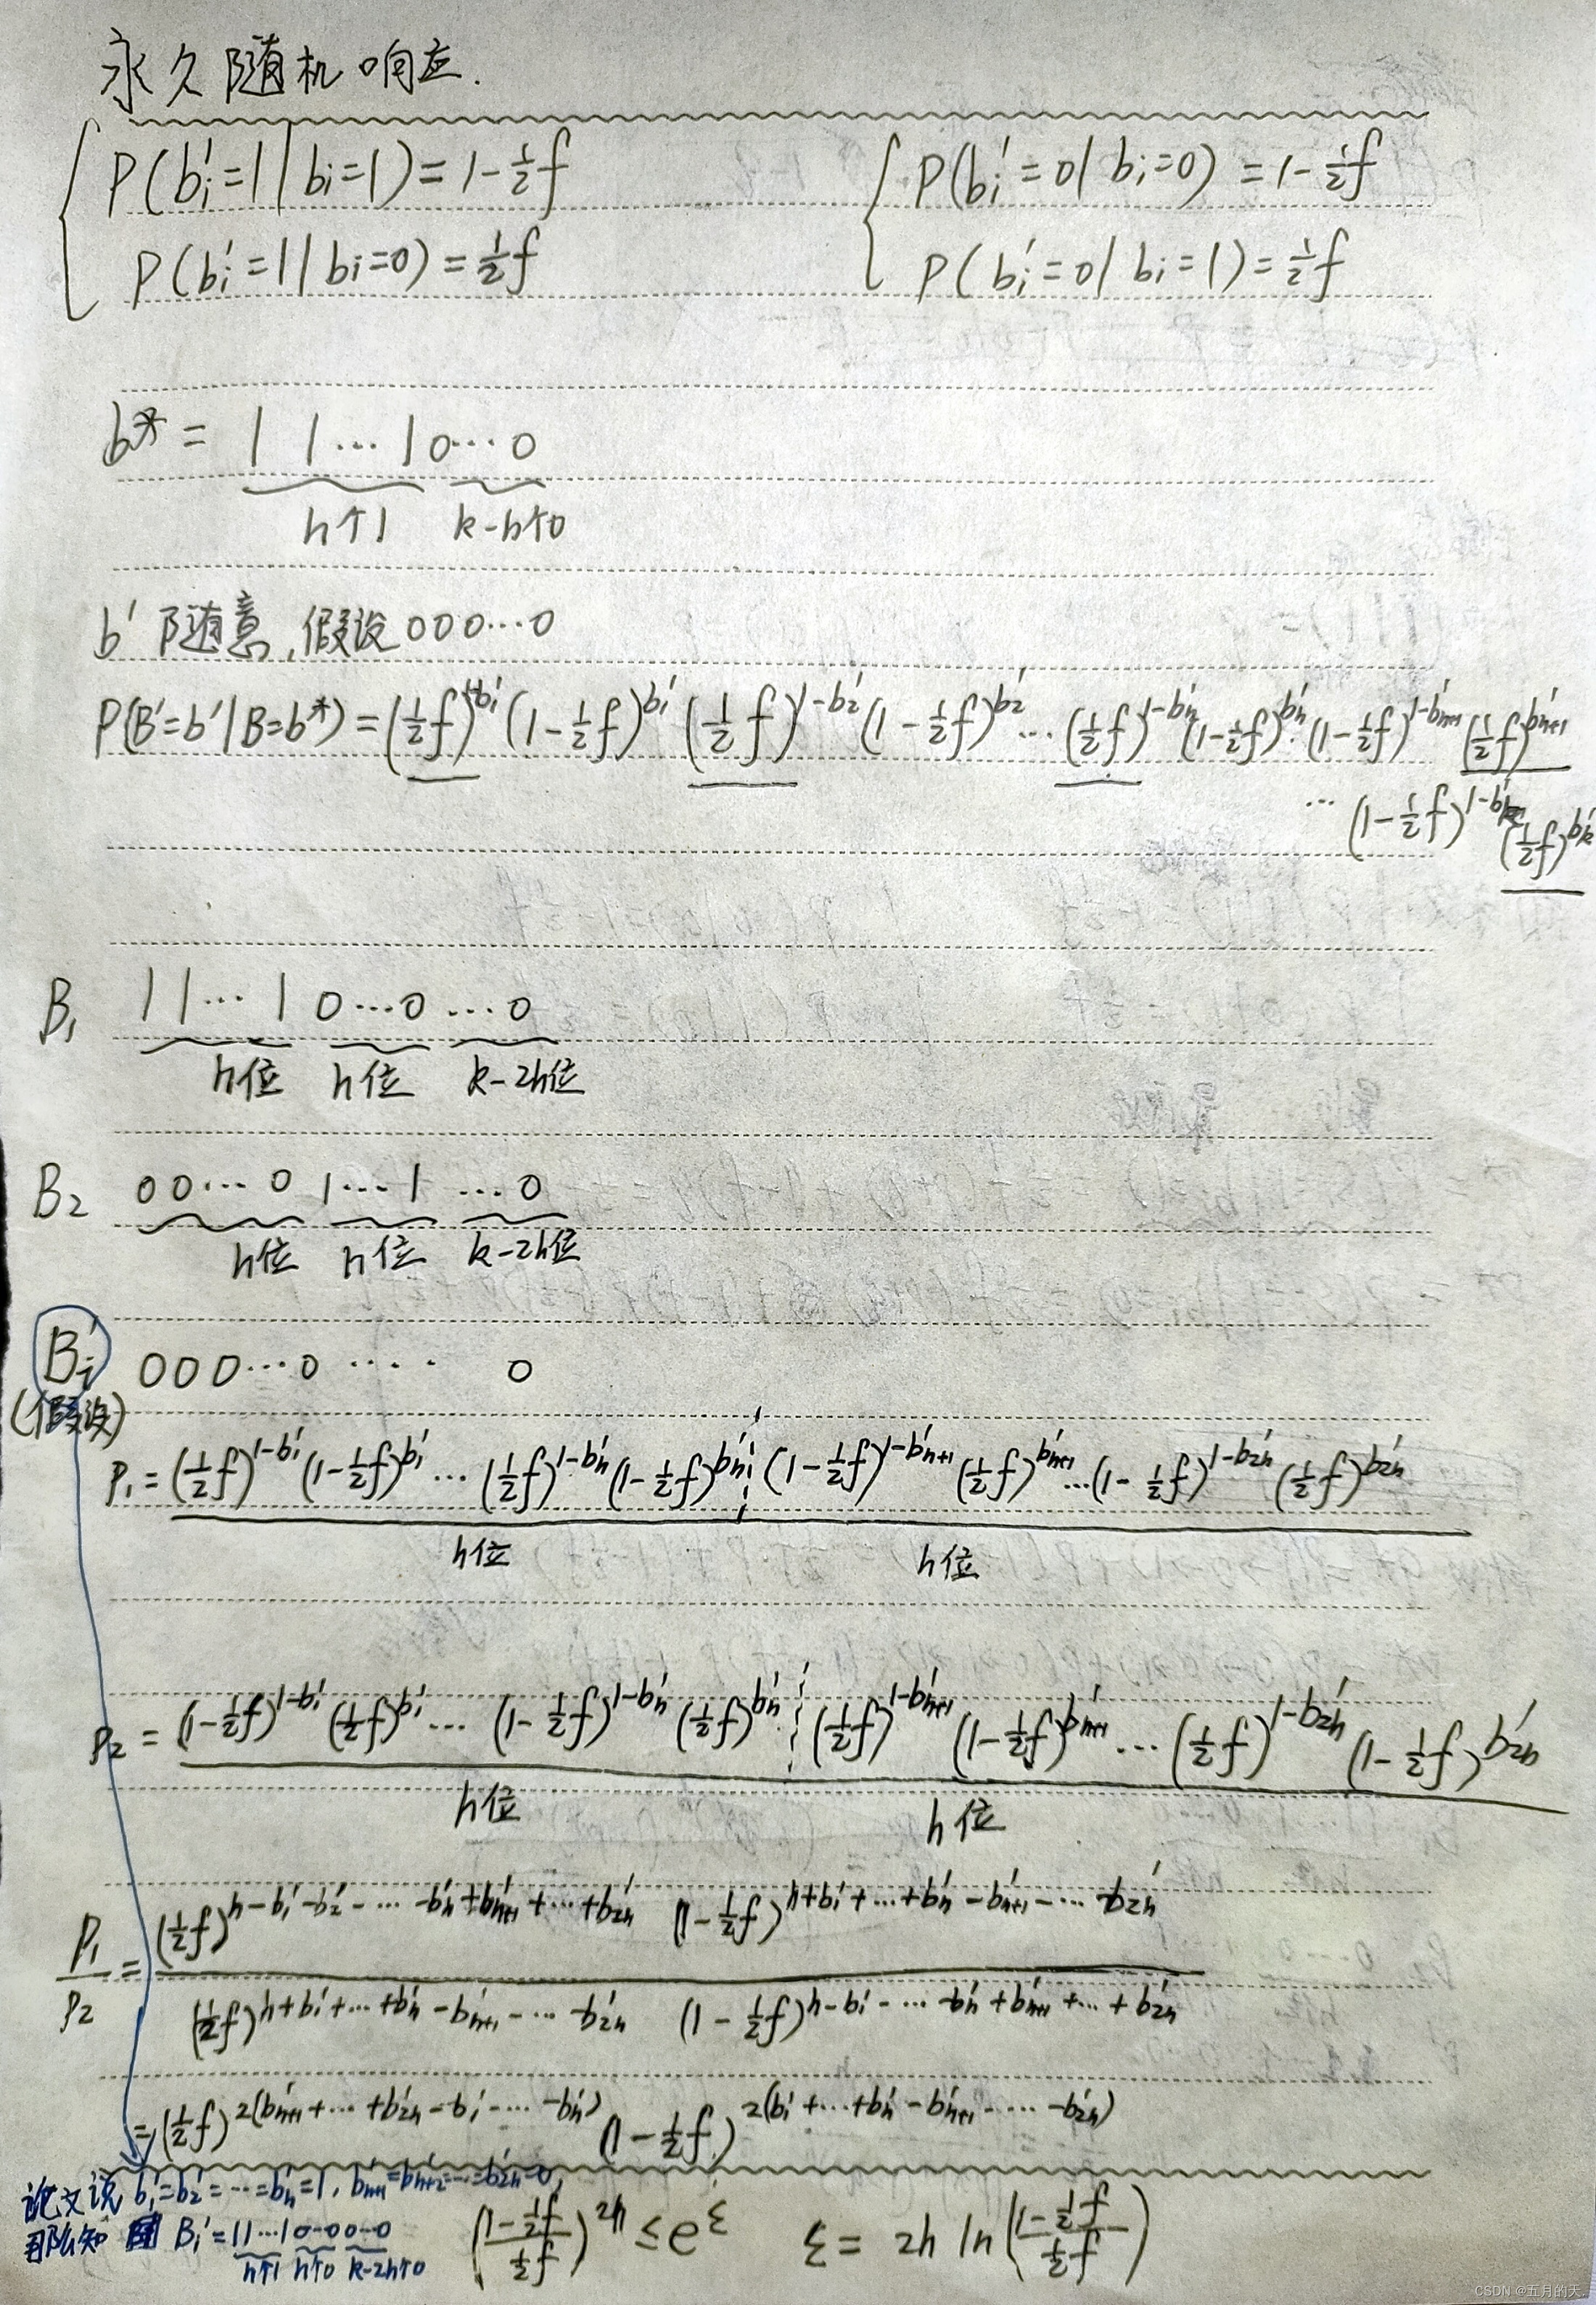 永久随机响应.
P(b₁'=1|bᵢ=1)=1-½f P(bᵢ'=0|bᵢ=0)=1-½f
P(bᵢ'=1|bᵢ=0)=½f P(bᵢ'=0|bᵢ=1)=½f
b*= 1 1…1 0…0
h个1 k-h个0
b' 随意,假设000…0
P(B'=b'|B=b*)=(½f)^(1-b₁')(1-½f)^(b₁')(½f)^(1-b₂')(1-½f)^(b₂')…(½f)^(1-bₕ')(1-½f)^(bₕ')(1-½f)^(1-bₕ₊₁')(½f)^(bₕ₊₁')
…(1-½f)^(1-bₖ')(½f)^(bₖ')
B₁ 11…1 0…0 …0
h位 h位 k-2h位
B₂ 00…0 1…1 …0
h位 h位 k-2h位
Bᵢ' 000…0 …. 0
(假设)
P₁=(½f)^(1-b₁')(1-½f)^(b₁')…(½f)^(1-bₕ')(1-½f)^(bₕ')(1-½f)^(1-bₕ₊₁')(½f)^(bₕ₊₁')…(1-½f)^(1-b₂ₕ')(½f)^(b₂ₕ')
h位 h位
P₂=(1-½f)^(1-b₁')(½f)^(b₁')…(1-½f)^(1-bₕ')(½f)^(bₕ')(½f)^(1-bₕ₊₁')(1-½f)^(bₕ₊₁')…(½f)^(1-b₂ₕ')(1-½f)^(b₂ₕ')
h位 h位
(½f)^(h-b₁'-b₂'-…-bₕ'+bₕ₊₁'+…+b₂ₕ') (1-½f)^(h+b₁'+…+bₕ'-bₕ₊₁'-…-b₂ₕ')
P₁/P₂=
(½f)^(h+b₁'+…+bₕ'-bₕ₊₁'-…-b₂ₕ') (1-½f)^(h-b₁'-…-bₕ'+bₕ₊₁'+…+b₂ₕ')
=(½f)^(2(bₕ₊₁'+…+b₂ₕ'-b₁'-…-bₕ'))(1-½f)^(2(b₁'+…+bₕ'-bₕ₊₁'-…-b₂ₕ'))
论文说 b₁'=b₂'=…=bₕ'=1, bₕ₊₁'=bₕ₊₂'=…=b₂ₕ'=0,
那么知 Bᵢ'=11…10…00…0 ((1-½f)/(½f))^(2h)≤e^ε ε=2h ln((1-½f)/(½f))
h个1 h个0 k-2h个0
CSDN @五月的天